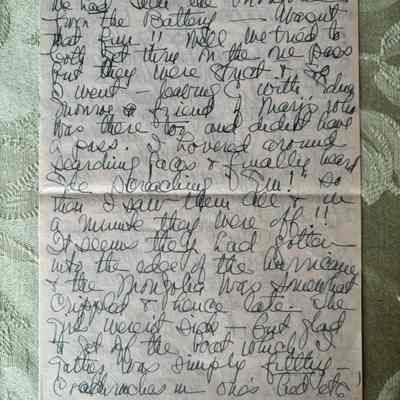 we had seen the
from the Battery — wasn't
that fun!! Well we tried to
both get there on the one pass
but they were strict & so
I went — leaving C with Edna
Monroe a friend of Mary's who
was there too and didn't have
a pass. I hovered around
searching faces & finally heard
the screaching of "Jim!" So
then I saw them all & in
a minute they were off!!
It seems they had gotten
into the edge of the hurricane
& the Mongolia was somewhat
crippled & hence late. The
girls weren't sick — but glad
to get off the boat which I
gather was simply filthy.
Cockroaches in one's bed etc!